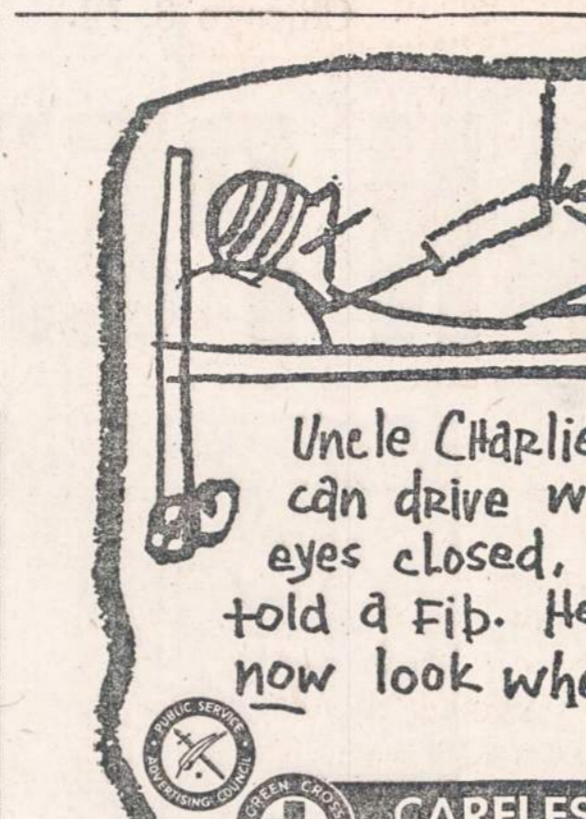 Uncle CHaRlie
can dRive w
eyes closed,
told a Fib. He
now look whe
PUBLIC SERVICE
ADVERTISING COUNCIL
GREEN CROSS
CARELES